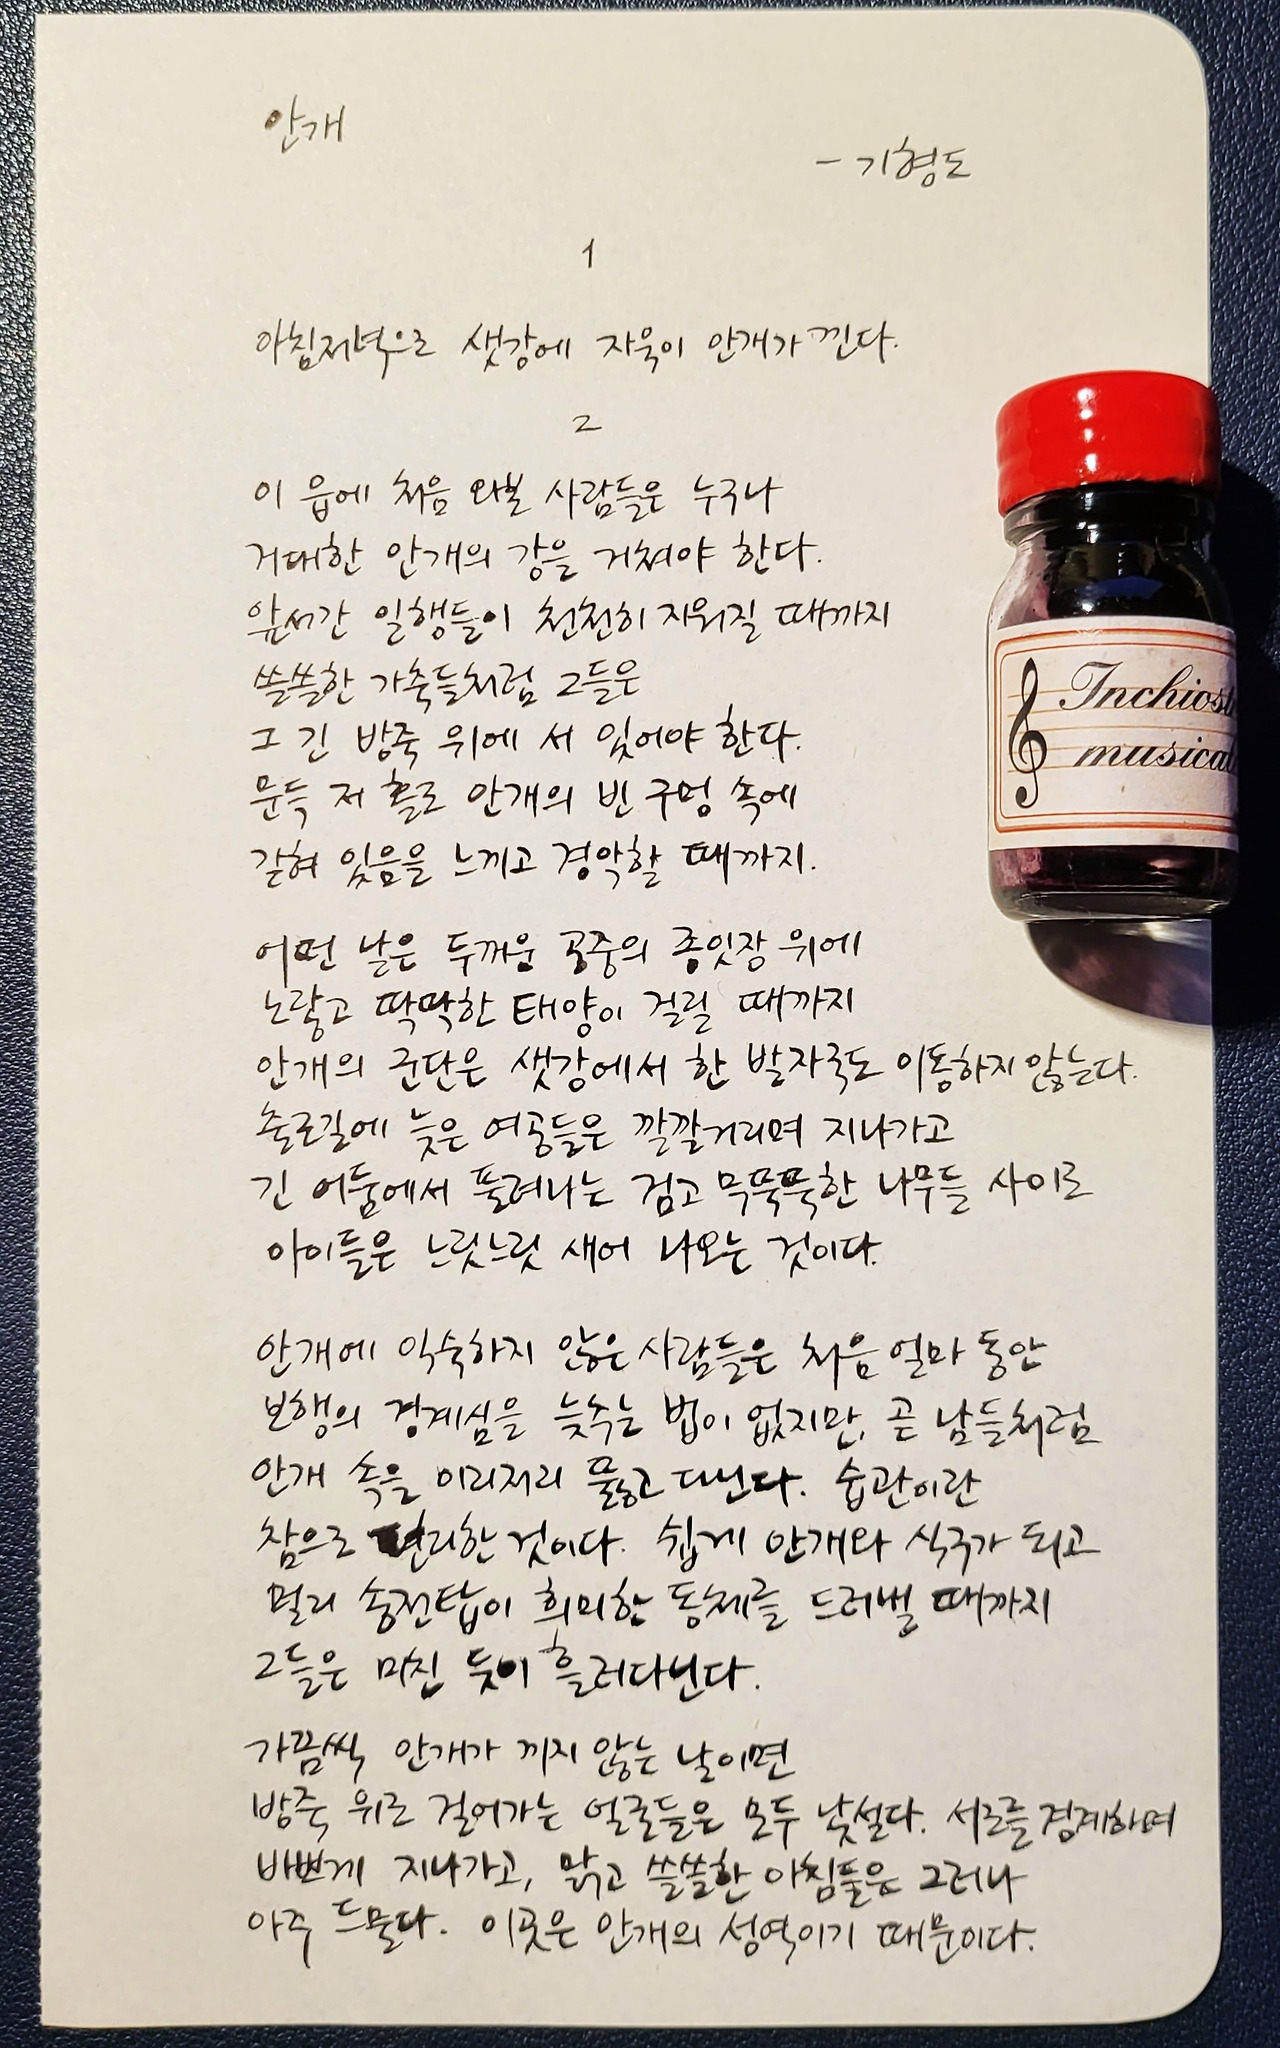 안개
- 기형도
1
아침저녁으로 샛강에 자욱이 안개가 낀다.
2
이 읍에 처음 와본 사람들은 누구나
거대한 안개의 강을 거쳐야 한다.
앞서간 일행들이 천천히 지워질 때까지
쓸쓸한 가축들처럼 그들은
그 긴 방죽 위에 서 있어야 한다.
문득 저 홀로 안개의 빈 구멍 속에
갇혀 있음을 느끼고 경악할 때까지.
어떤 날은 두꺼운 공중의 종잇장 위에
노랗고 딱딱한 태양이 걸릴 때까지
안개의 군단은 샛강에서 한 발자국도 이동하지 않는다.
출근길에 늦은 여공들은 깔깔거리며 지나가고
긴 어둠에서 풀려나는 검고 무뚝뚝한 나무들 사이로
아이들은 느릿느릿 새어 나오는 것이다.
안개에 익숙하지 않은 사람들은 처음 얼마 동안
보행의 경계심을 늦추는 법이 없지만, 곧 남들처럼
안개 속을 이리저리 뚫고 다닌다. 습관이란
참으로 편리한 것이다. 쉽게 안개와 식구가 되고
멀리 송전탑이 희미한 동체를 드러낼 때까지
그들은 미친 듯이 흘러다닌다.
가끔씩 안개가 끼지 않는 날이면
방죽 위로 걸어가는 얼굴들은 모두 낯설다. 서로를 경계하며
바쁘게 지나가고, 맑고 쓸쓸한 아침들은 그러나
아주 드물다. 이곳은 안개의 성역이기 때문이다.
musical